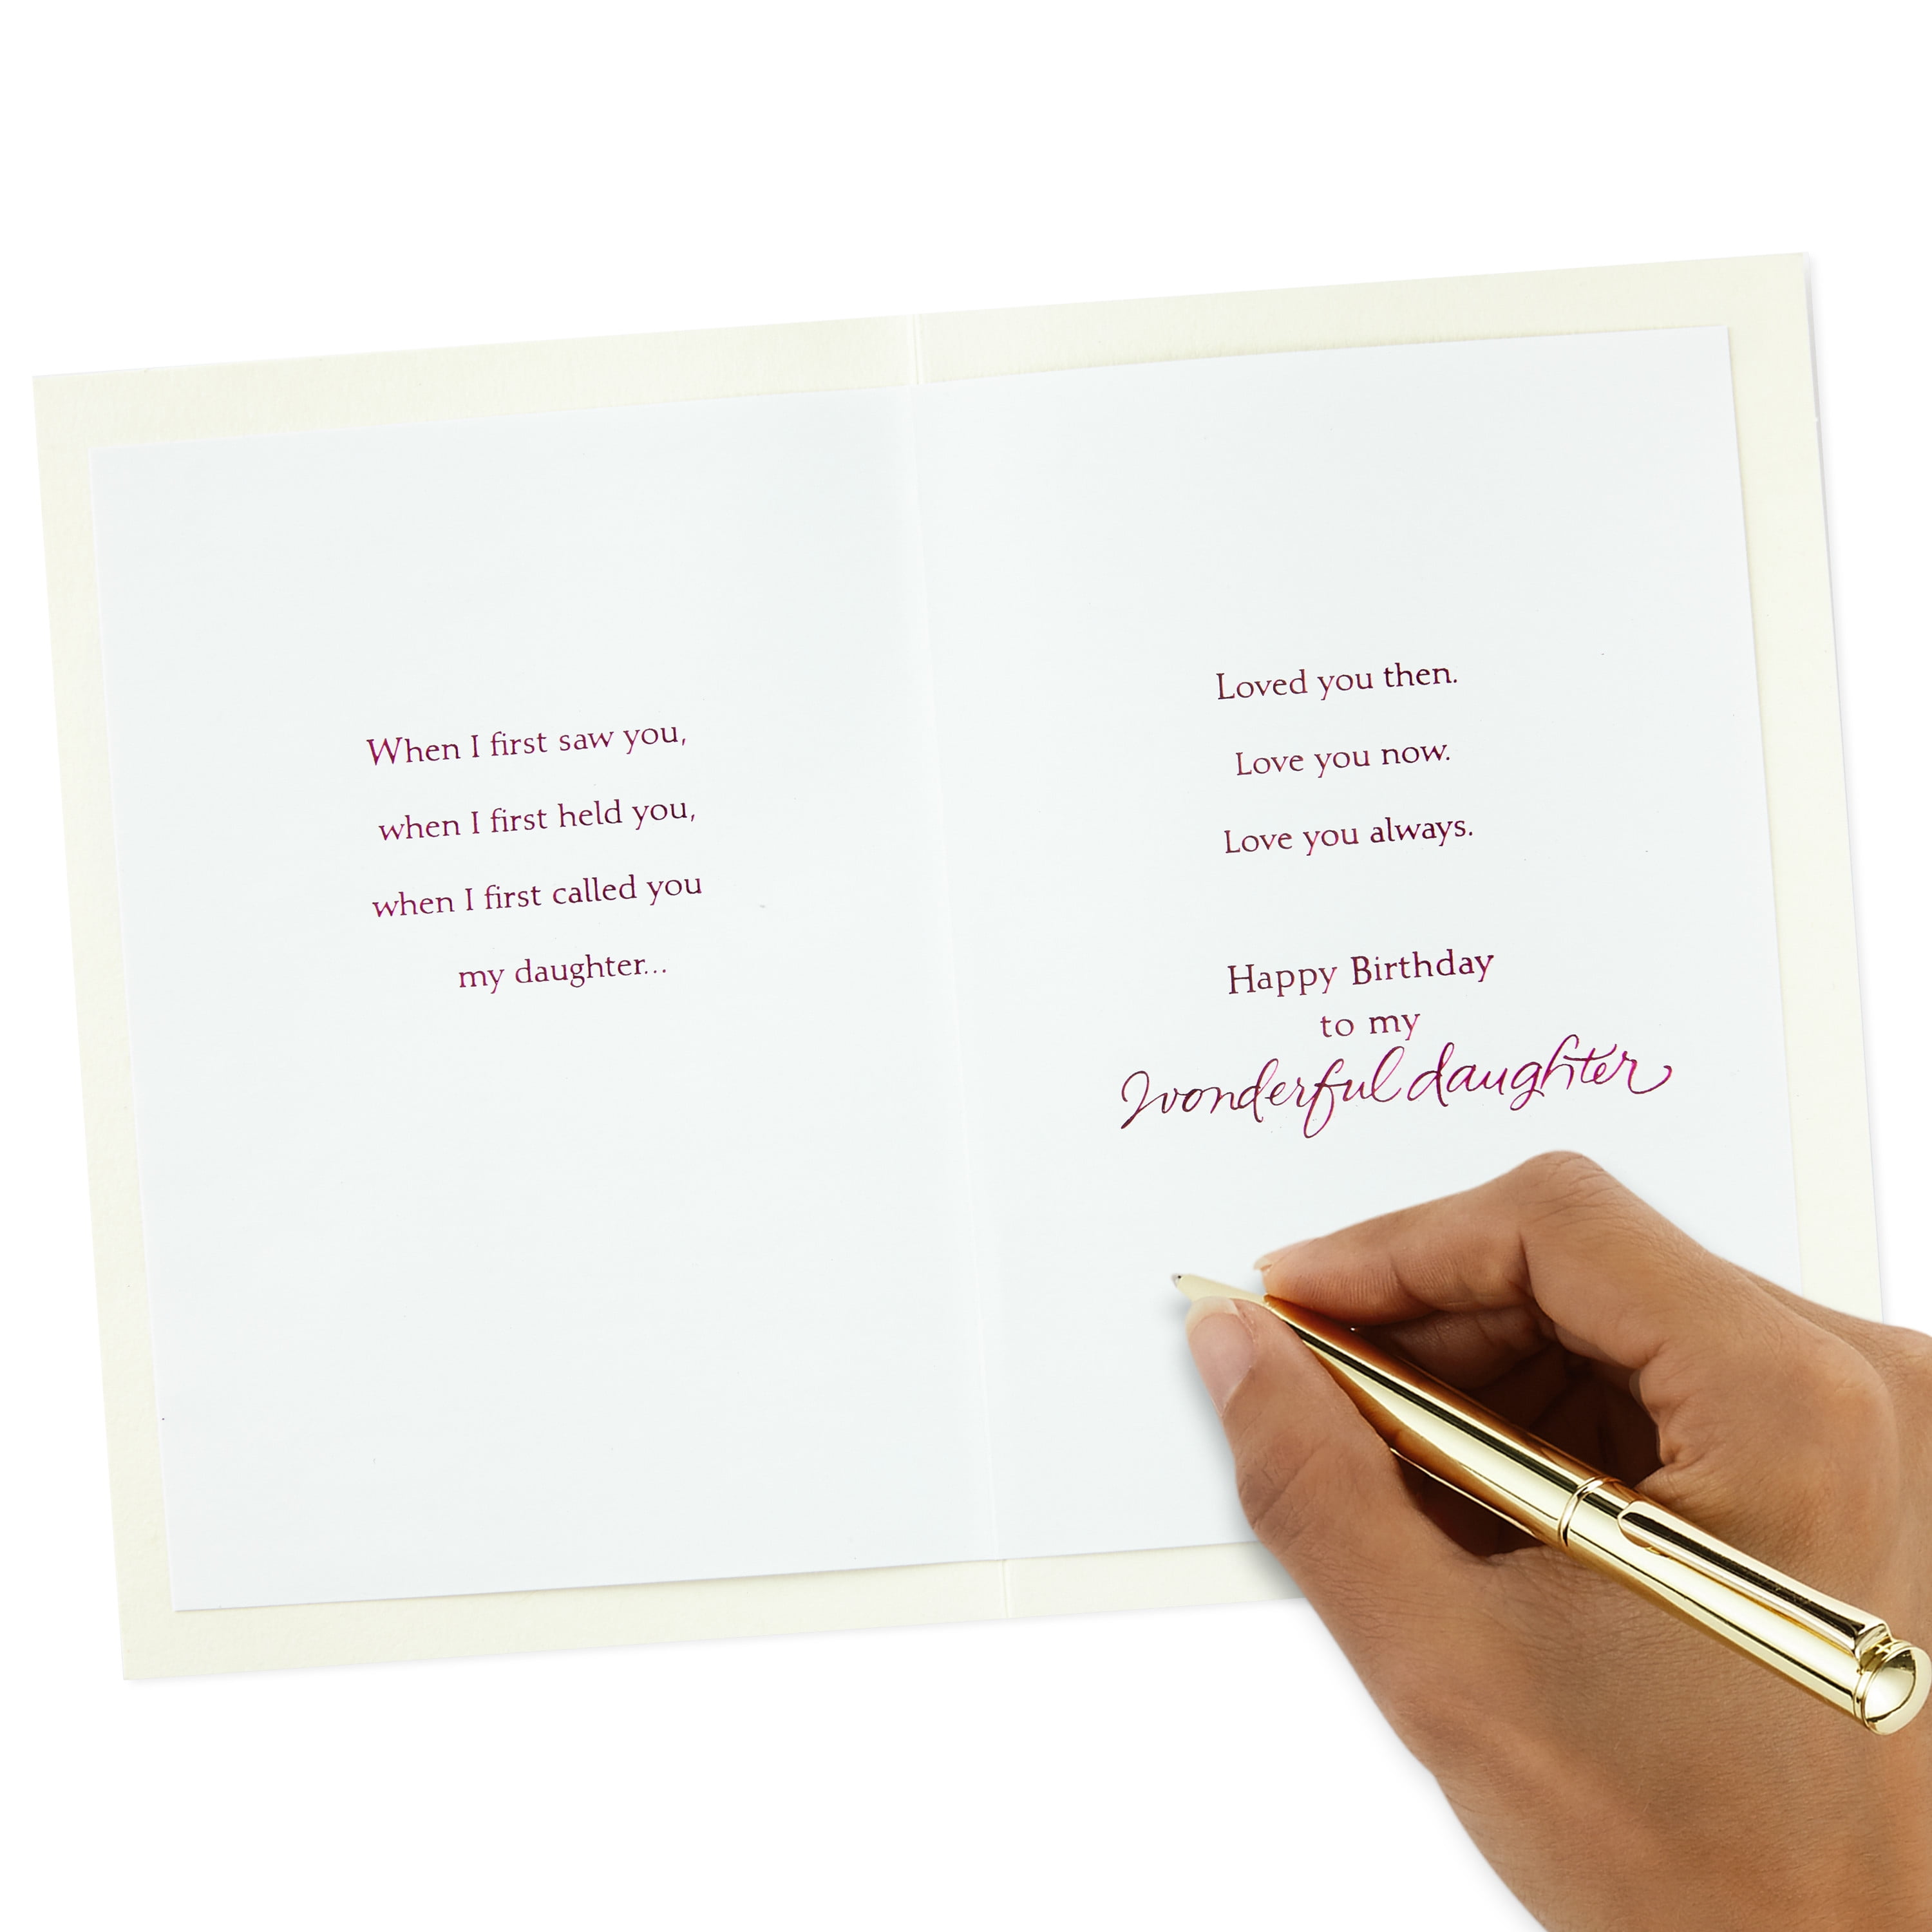 When I first saw you,
when I first held you,
when I first called you
my daughter...
Loved you then.
Love you now.
Love you always.
Happy Birthday
to my
wonderful daughter